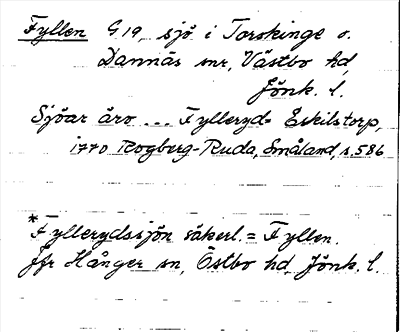 Fyllen G.19, sjö i Torskinge o.
Dannäs snr, Västbo hd,
Jönk. l.
Sjöar äro ... Fylleryd= Eskilstorp,
1770 Rogberg-Ruda, Småland, s. 586
*Fyllerydssjön säkerl. = Fyllen.
Jfr Hånger sn, Östbo hd, Jönk. l.